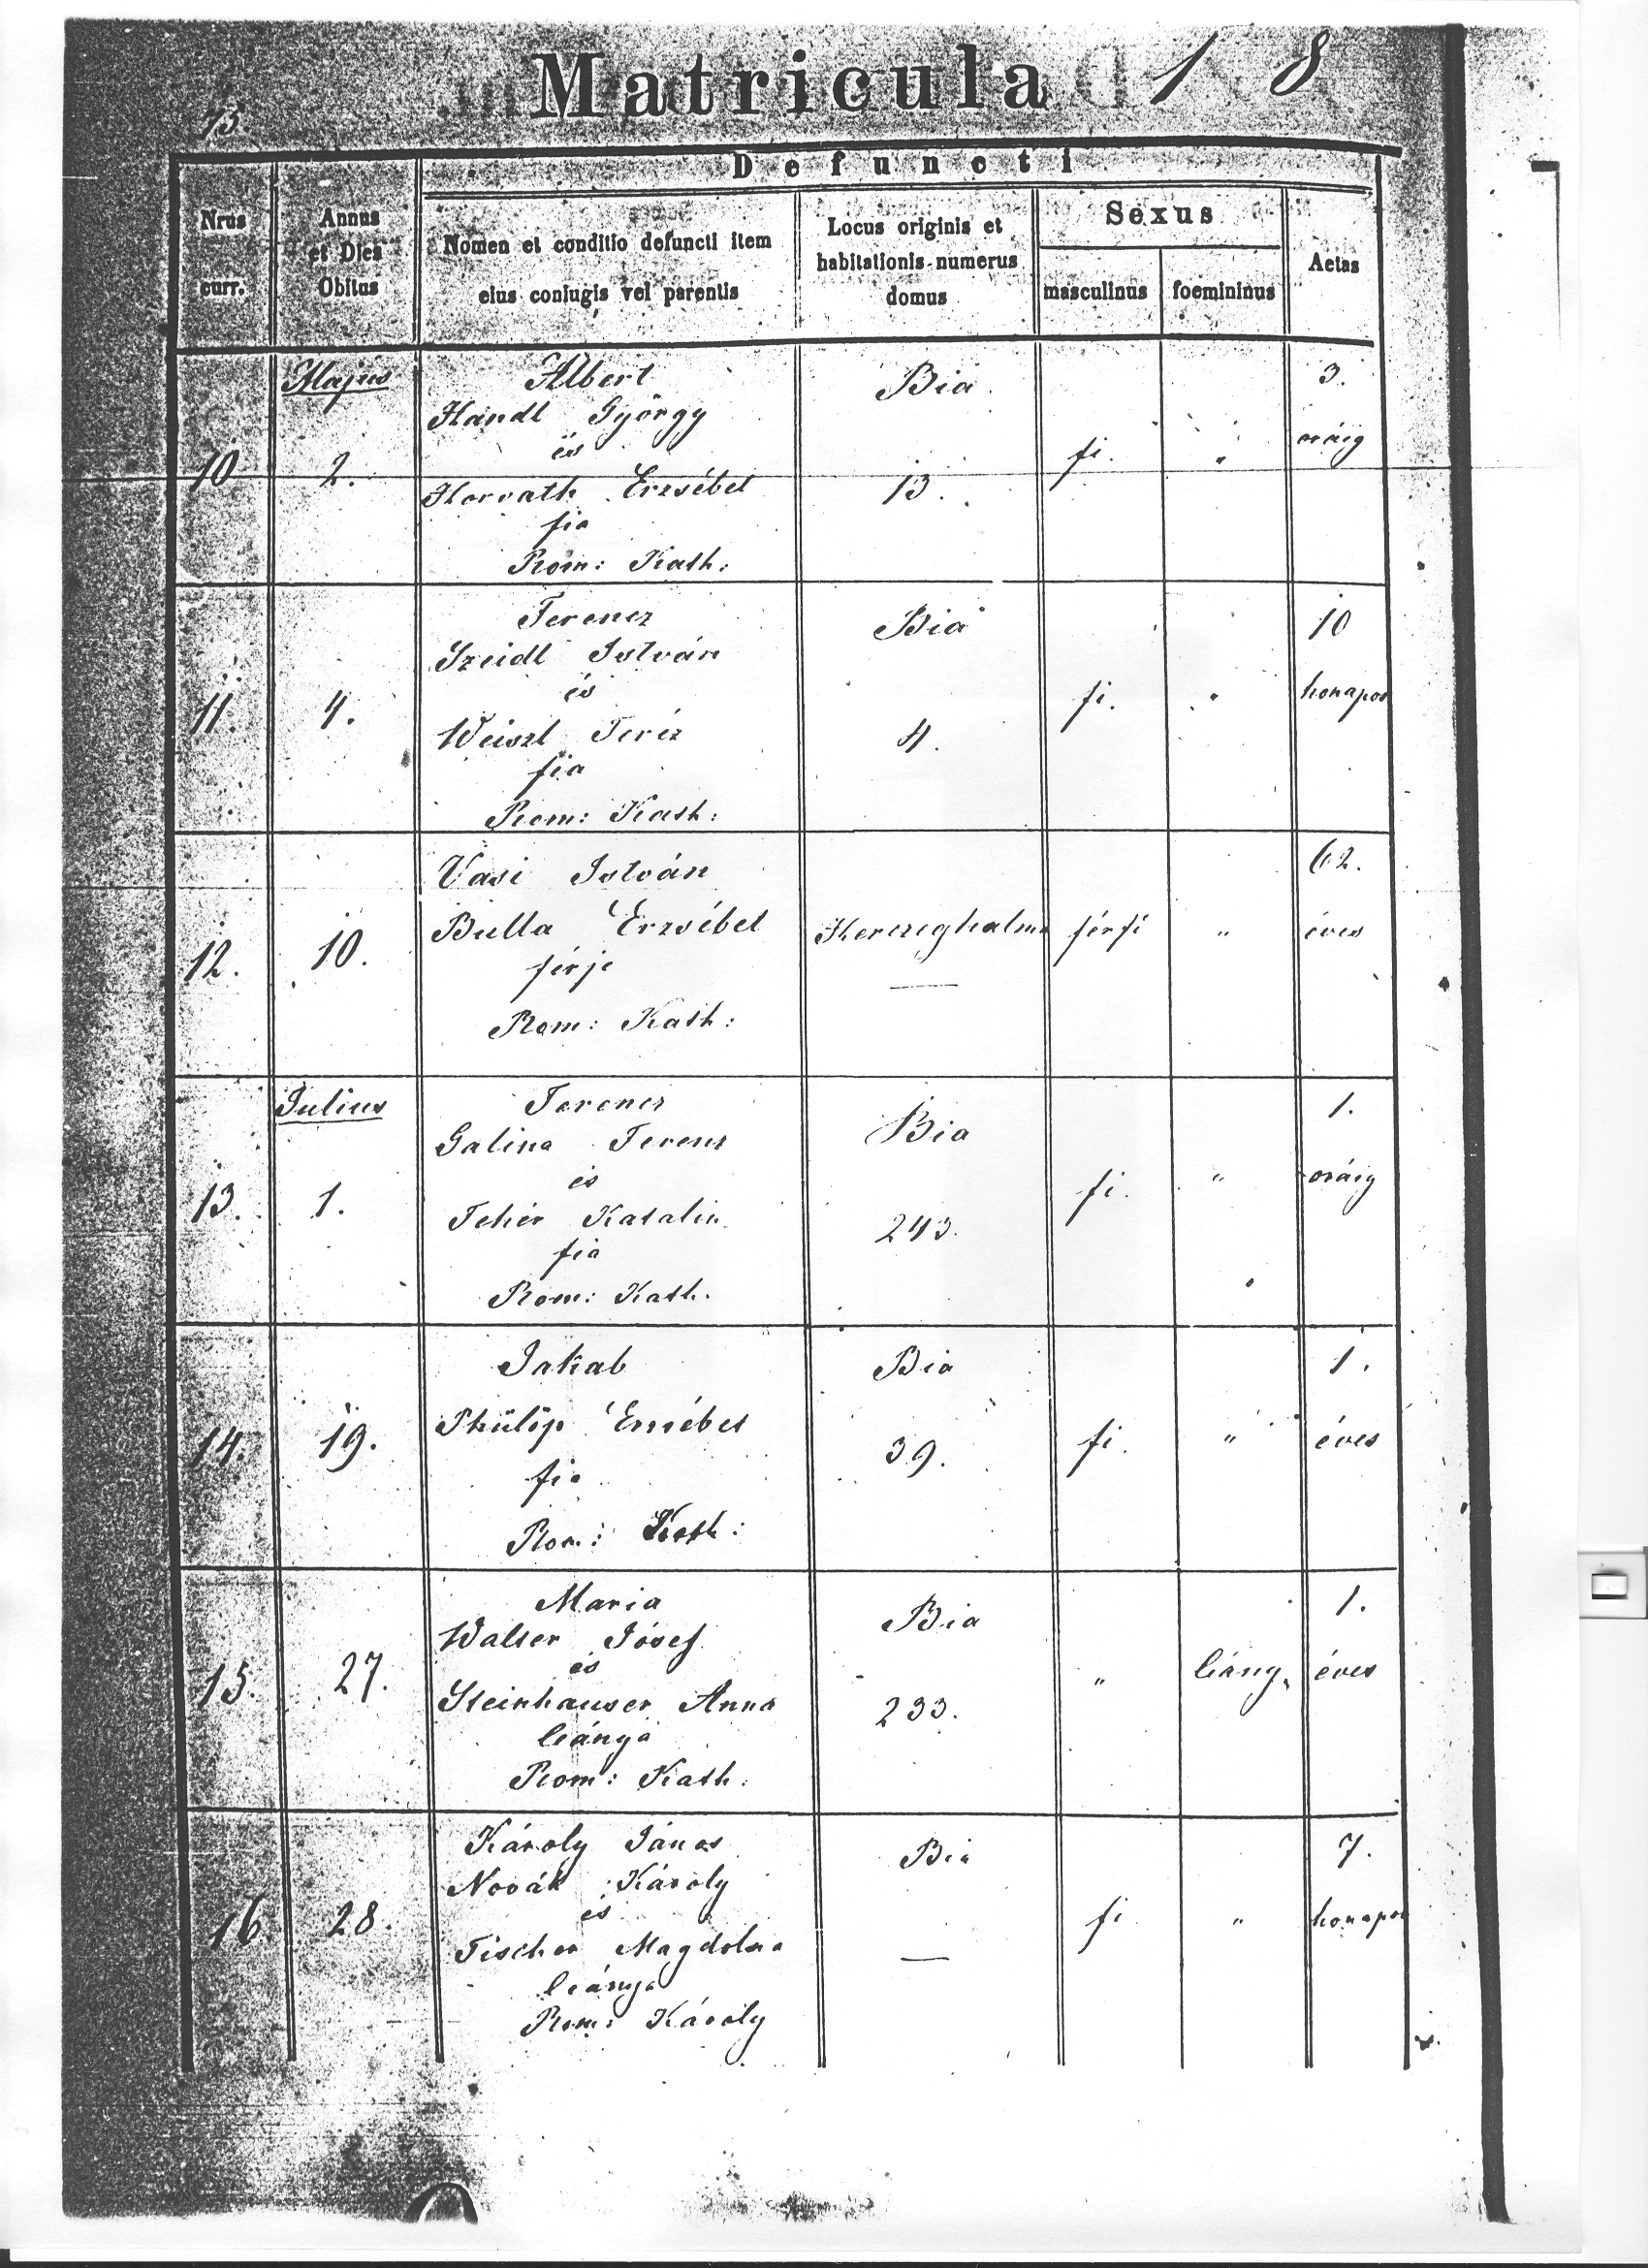 Matricula 1 8
73
Defuncti
Nrus curr.
Annus et Dies Obitus
Nomen et conditio defuncti item
eius coniugis vel parentis
Locus originis et
habitationis numerus
domus
Sexus
masculinus
foemininus
Aetas
Majus
Albert
Handl György
és
Horvath Erzsébet
fia
Rom: Kath:
10
2.
Bia
13.
fi.
"
3.
oráig
Ferencz
Szeidl István
és
Weiszl Teréz
fia
Rom: Kath:
11.
4.
Bia
4.
fi.
"
10
honapos
Vasi István
Bulla Erzsébet
férje
Rom: Kath:
12.
10.
Herczeghalma
—
férfi
"
62.
éves
Julius
Ferencz
Galina Ferenz
és
Fehér Katalin
fia
Rom: Kath.
13.
1.
Bia
243.
fi.
"
1.
oráig
Jakab
Phülöp Erzsébet
fia
Rom: Kath:
14.
19.
Bia
39.
fi.
"
1.
éves
Maria
Walter Jósef
és
Steinhauser Anna
leánya
Rom: Kath:
15.
27.
Bia
233.
"
leány
1.
éves
Károly János
Novák Károly
és
Fischer Magdolna
leánya
Rom: Károly
16
28.
Bia
—
fi
"
7.
honapos